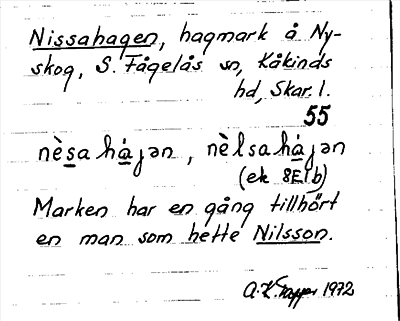 Nissahagen, hagmark å Ny-
skog, S. Fågelås sn, Kåkinds
hd, Skar. l.
55
nèsa hájən, nèlsahájən
(ek 8E1b)
Marken har en gång tillhört
en man som hette Nilsson.
A.K. 1972